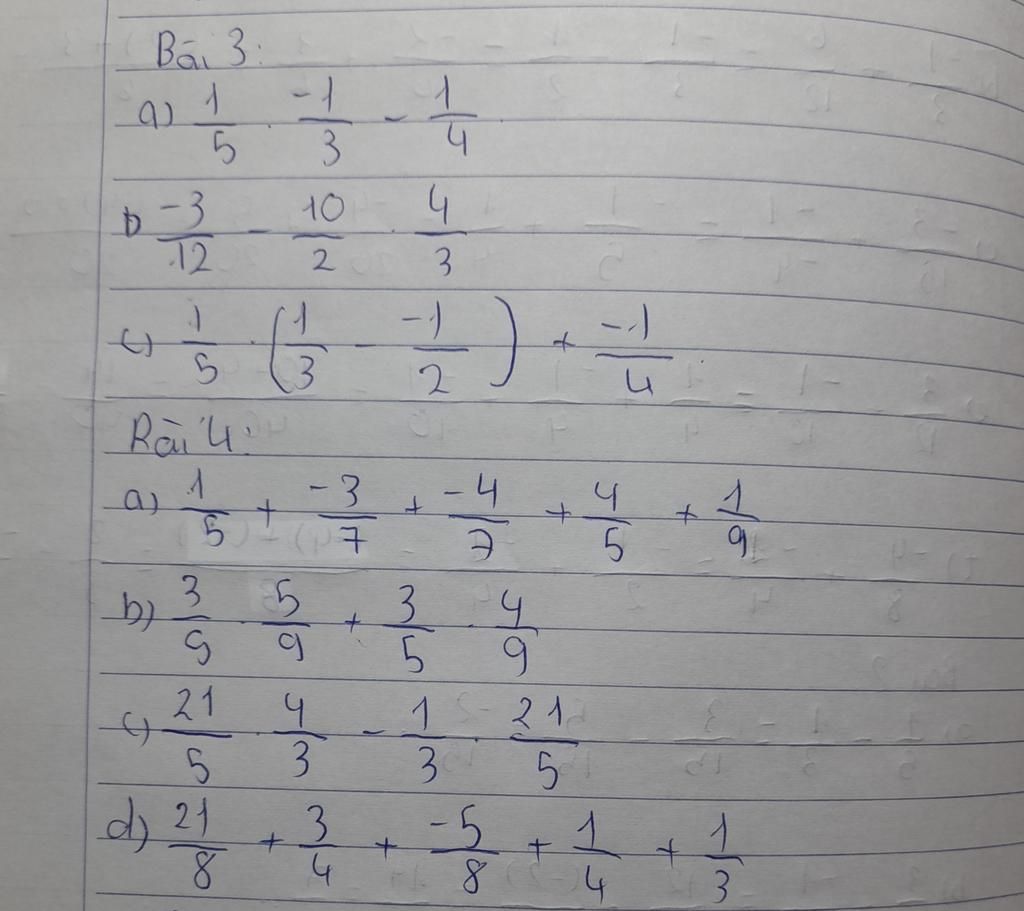 Bài 3:
a) 1/5 . -1/3 - 1/4
b -3/12 - 10/2 . 4/3
c) 1/5 . (1/3 - -1/2) + -1/4
Bài 4:
a) 1/5 + -3/7 + -4/7 + 4/5 + 1/9
b) 3/9 . 5/9 + 3/5 . 4/9
c) 21/5 . 4/3 - 1/3 . 21/5
d) 21/8 + 3/4 + -5/8 + 1/4 + 1/3